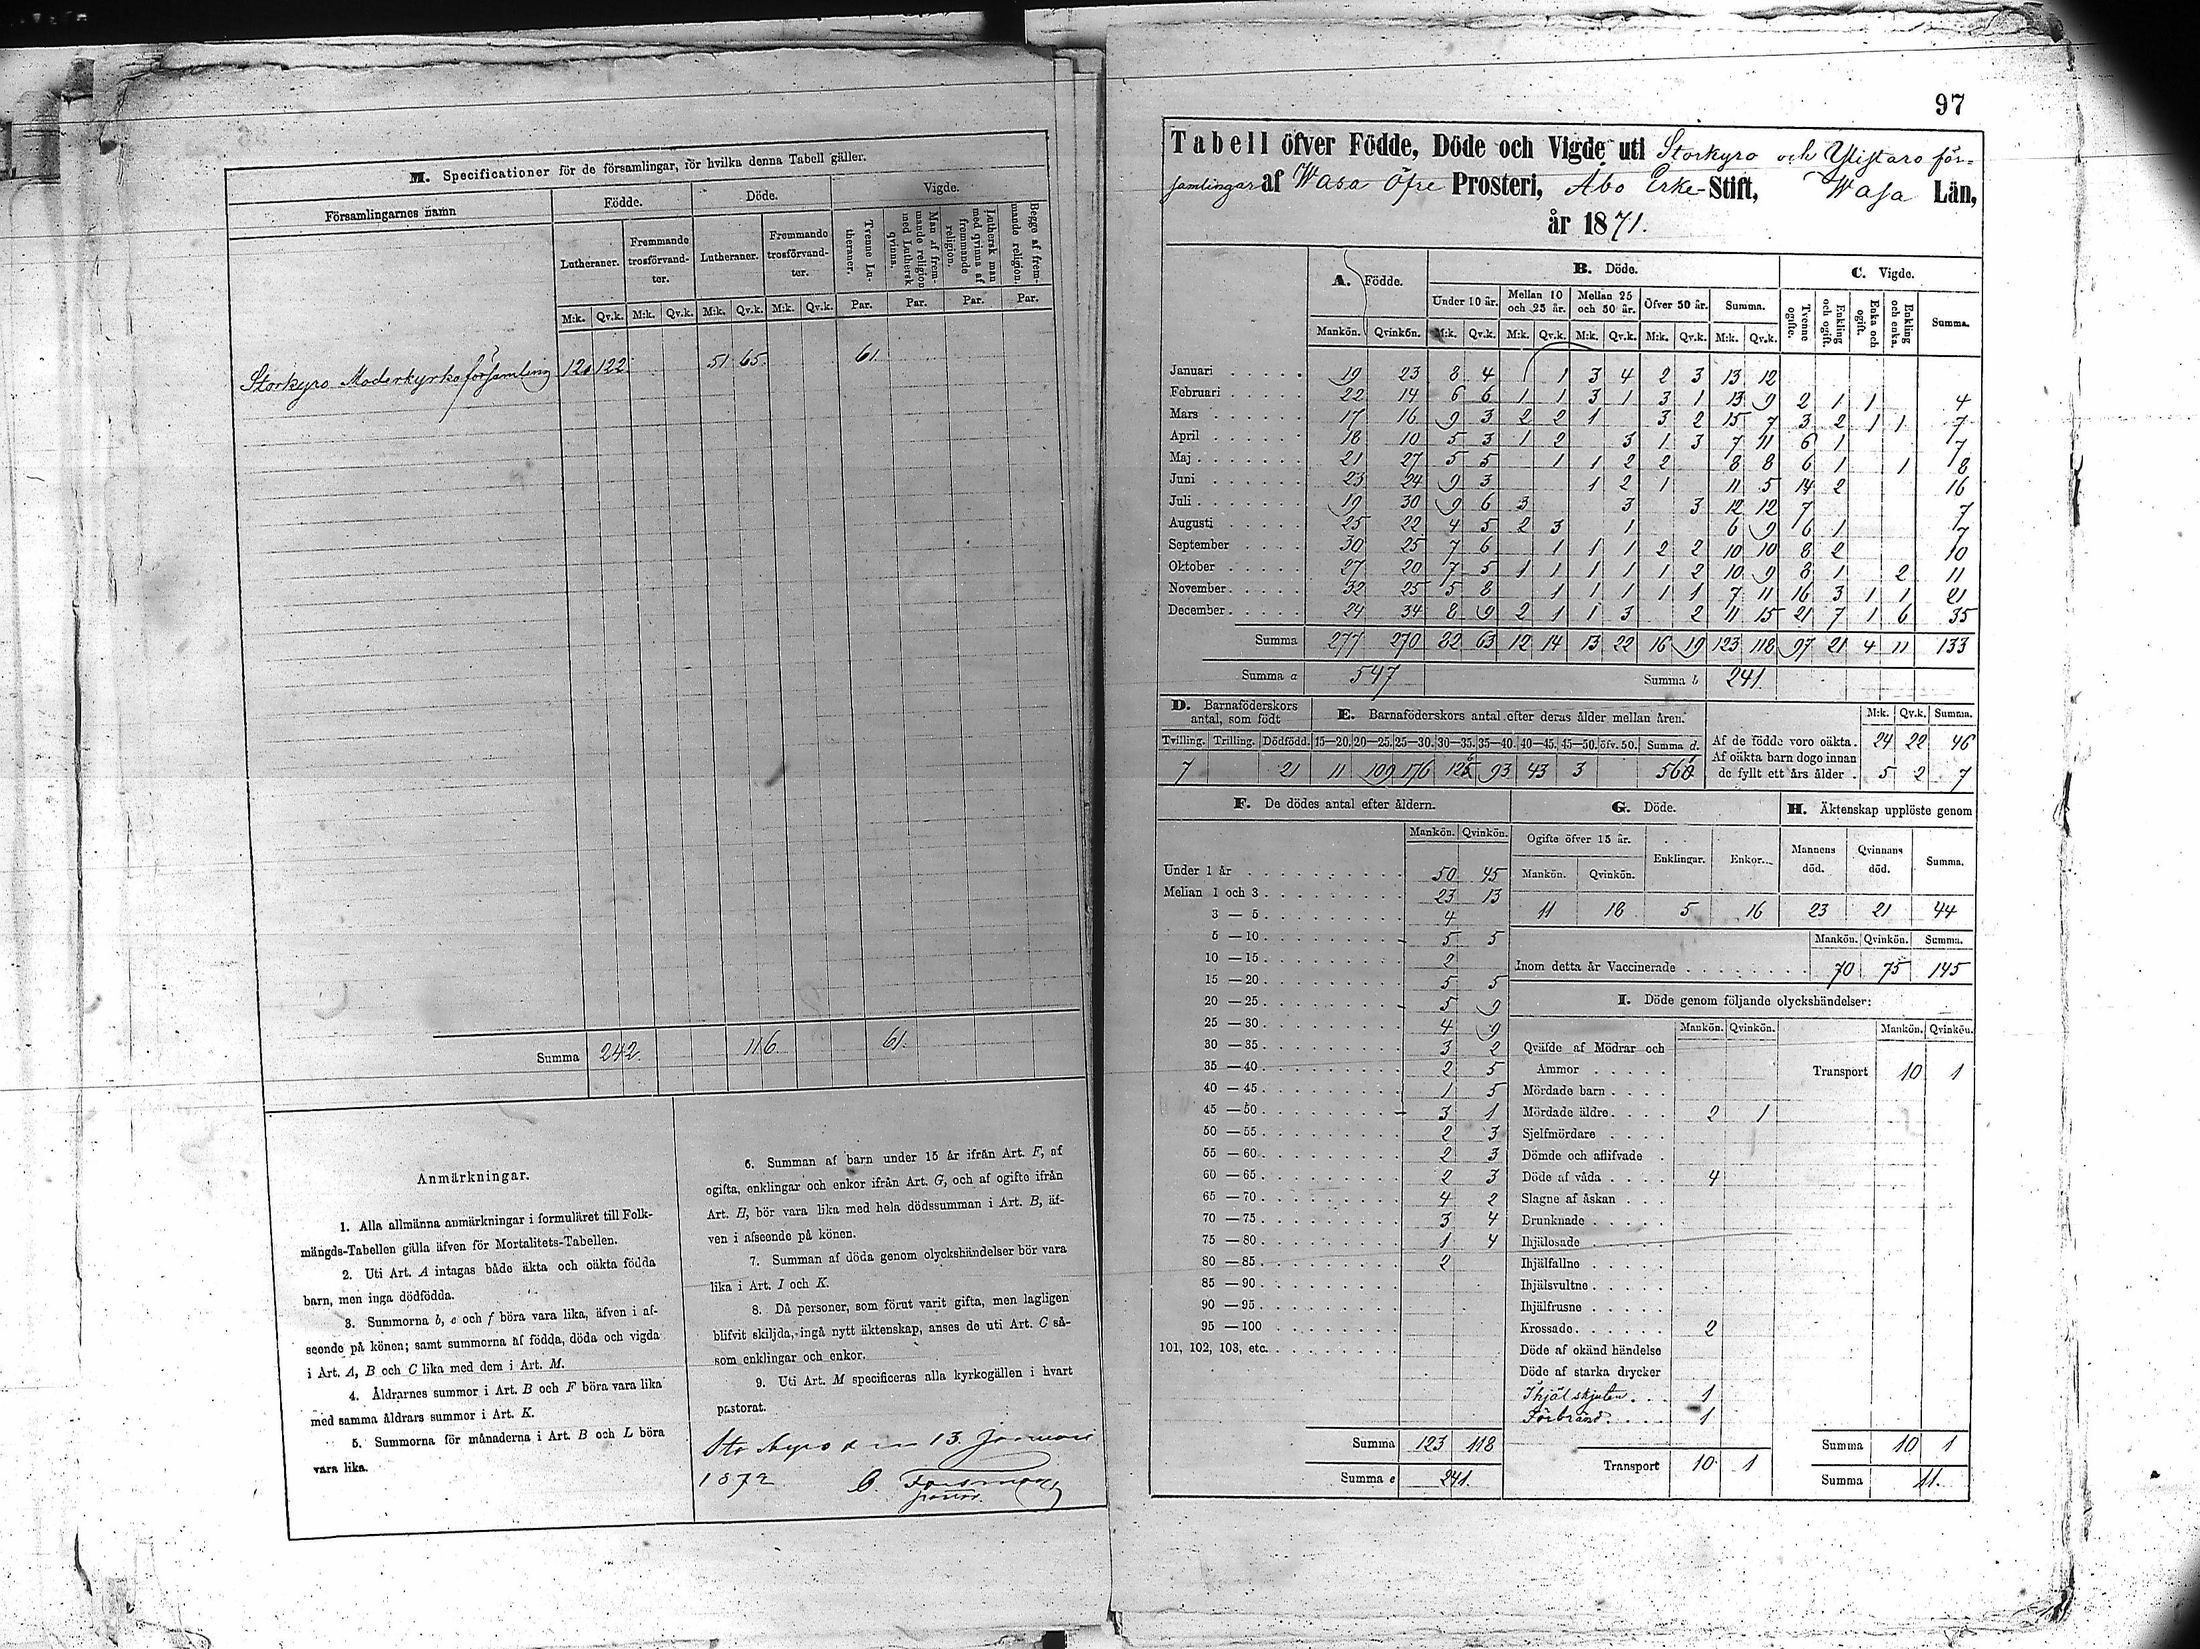 M. Specificationer för de församlingar, för hvilka denna Tabell gäller.
Församlingarnes namn
Födde.
Döde.
Vigde.
Lutheraner.
Fremmande trosförvandter.
Lutheraner.
Fremmande trosförvandter.
Tvenne Lutheraner.
Man af fremmande religion med Luthersk qvinna.
Luthersk man med qvinna af fremmande religion.
Begge af fremmande religion.
M:k. Qv.k. M:k. Qv.k. M:k. Qv.k. M:k. Qv.k. Par. Par. Par. Par.
Storkyro Moderkyrko församling 120 122 51 65 61
Summa 242. 116. 61.
Anmärkningar.
1. Alla allmänna anmärkningar i formuläret till Folk-
mängds-Tabellen gälla äfven för Mortalitets-Tabellen.
2. Uti Art. A intagas både äkta och oäkta födda
barn, men inga dödfödda.
3. Summorna b, e och f böra vara lika, äfven i af-
seende på könen; samt summorna af födda, döda och vigda
i Art. A, B och C lika med dem i Art. M.
4. Åldrarnes summor i Art. B och F böra vara lika
med samma åldrars summor i Art. K.
5. Summorna för månaderna i Art. B och L böra
vara lika.
6. Summan af barn under 15 år ifrån Art. F, af
ogifta, enklingar och enkor ifrån Art. G, och af ogifte ifrån
Art. H, bör vara lika med hela dödssumman i Art. B, äf-
ven i afseende på könen.
7. Summan af döda genom olyckshändelser bör vara
lika i Art. I och K.
8. Då personer, som förut varit gifta, men lagligen
blifvit skiljda, ingå nytt äktenskap, anses de uti Art. C så-
som enklingar och enkor.
9. Uti Art. M specificeras alla kyrkogällen i hvart
pastorat.
Storkyro den 13 Januari
1872 C. Forsman
pastor.
97
Tabell öfver Födde, Döde och Vigde uti Storkyro och Ylistaro för-
samlingar af Wasa Öfre Prosteri, Åbo Erke-Stift, Wasa Län,
år 1871.
A. Födde.
B. Döde.
C. Vigde.
Under 10 år. Mellan 10 och 25 år. Mellan 25 och 50 år. Öfver 50 år. Summa.
Tvenne ogifte. Enkling och ogift. Enka och ogift. Enkling och enka. Summa.
Mankön. Qvinkön. M:k. Qv.k. M:k. Qv.k. M:k. Qv.k. M:k. Qv.k. M:k. Qv.k.
Januari 19 23 8 4 1 3 4 2 3 13 12
Februari 22 14 6 6 1 1 3 1 3 1 13 9 2 1 1 4
Mars 17 16 9 3 2 2 1 3 2 15 7 3 2 1 1 7
April 18 10 5 3 1 2 3 1 3 7 11 6 1 7
Maj 21 27 5 5 1 1 2 2 8 8 6 1 1 8
Juni 23 24 9 3 1 2 1 11 5 14 2 16
Juli 19 30 9 6 3 3 3 12 12 7 7
Augusti 25 22 4 5 2 3 1 6 9 6 1 7
September 30 25 7 6 1 1 1 2 2 10 10 8 2 10
Oktober 27 20 7 5 1 1 1 1 1 2 10 9 8 1 2 11
November 32 25 5 8 1 1 1 1 1 7 11 16 3 1 1 21
December 24 34 8 9 2 1 1 3 2 11 15 21 7 1 6 35
Summa 277 270 82 63 12 14 13 22 16 19 123 118 97 21 4 11 133
Summa a 547 Summa b 241.
D. Barnaföderskors antal, som födt
E. Barnaföderskors antal efter deras ålder mellan åren.
M:k. Qv.k. Summa.
Tvilling. Trilling. Dödfödd. 15—20. 20—25. 25—30. 30—35. 35—40. 40—45. 45—50. öfv. 50. Summa d.
7 21 11 109 176 93 43 3
Af de födde voro oäkta. 24 22 46
Af oäkta barn dogo innan
de fyllt ett års ålder. 5 2 7
F. De dödes antal efter åldern.
Mankön. Qvinkön.
Under 1 år 50 45
Mellan 1 och 3 23 13
3 — 5 4
5 — 10 5 5
10 — 15 2
15 — 20 5 5
20 — 25 5 9
25 — 30 4 9
30 — 35 3 2
35 — 40 2 5
40 — 45 1 5
45 — 50 3 1
50 — 55 2 3
55 — 60 2 3
60 — 65 2 3
65 — 70 4 2
70 — 75 3 4
75 — 80 1 4
80 — 85 2
85 — 90
90 — 95
95 — 100
101, 102, 103, etc.
Summa 123 118
Summa e 241.
G. Döde.
Ogifte öfver 15 år. Enklingar. Enkor.
Mankön. Qvinkön.
11 18 5 16
H. Äktenskap upplöste genom
Mannens död. Qvinnans död. Summa.
23 21 44
Mankön. Qvinkön. Summa.
Inom detta år Vaccinerade 70 75 145
I. Döde genom följande olyckshändelser:
Mankön. Qvinkön. Mankön. Qvinkön.
Qväfde af Mödrar och
Ammor
Transport 10 1
Mördade barn
Mördade äldre 2 1
Sjelfmördare
Dömde och aflifvade
Döde af våda 4
Slagne af åskan
Drunknade
Ihjälosade
Ihjälfallne
Ihjälsvultne
Ihjälfrusne
Krossade 2
Döde af okänd händelse
Döde af starka drycker
Ihjälskjuten 1
Förbränd 1
Transport 10 1
Summa 10 1
Summa 11.